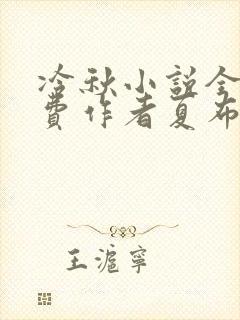 冷秋小説全
費作者夏布
王滬寧